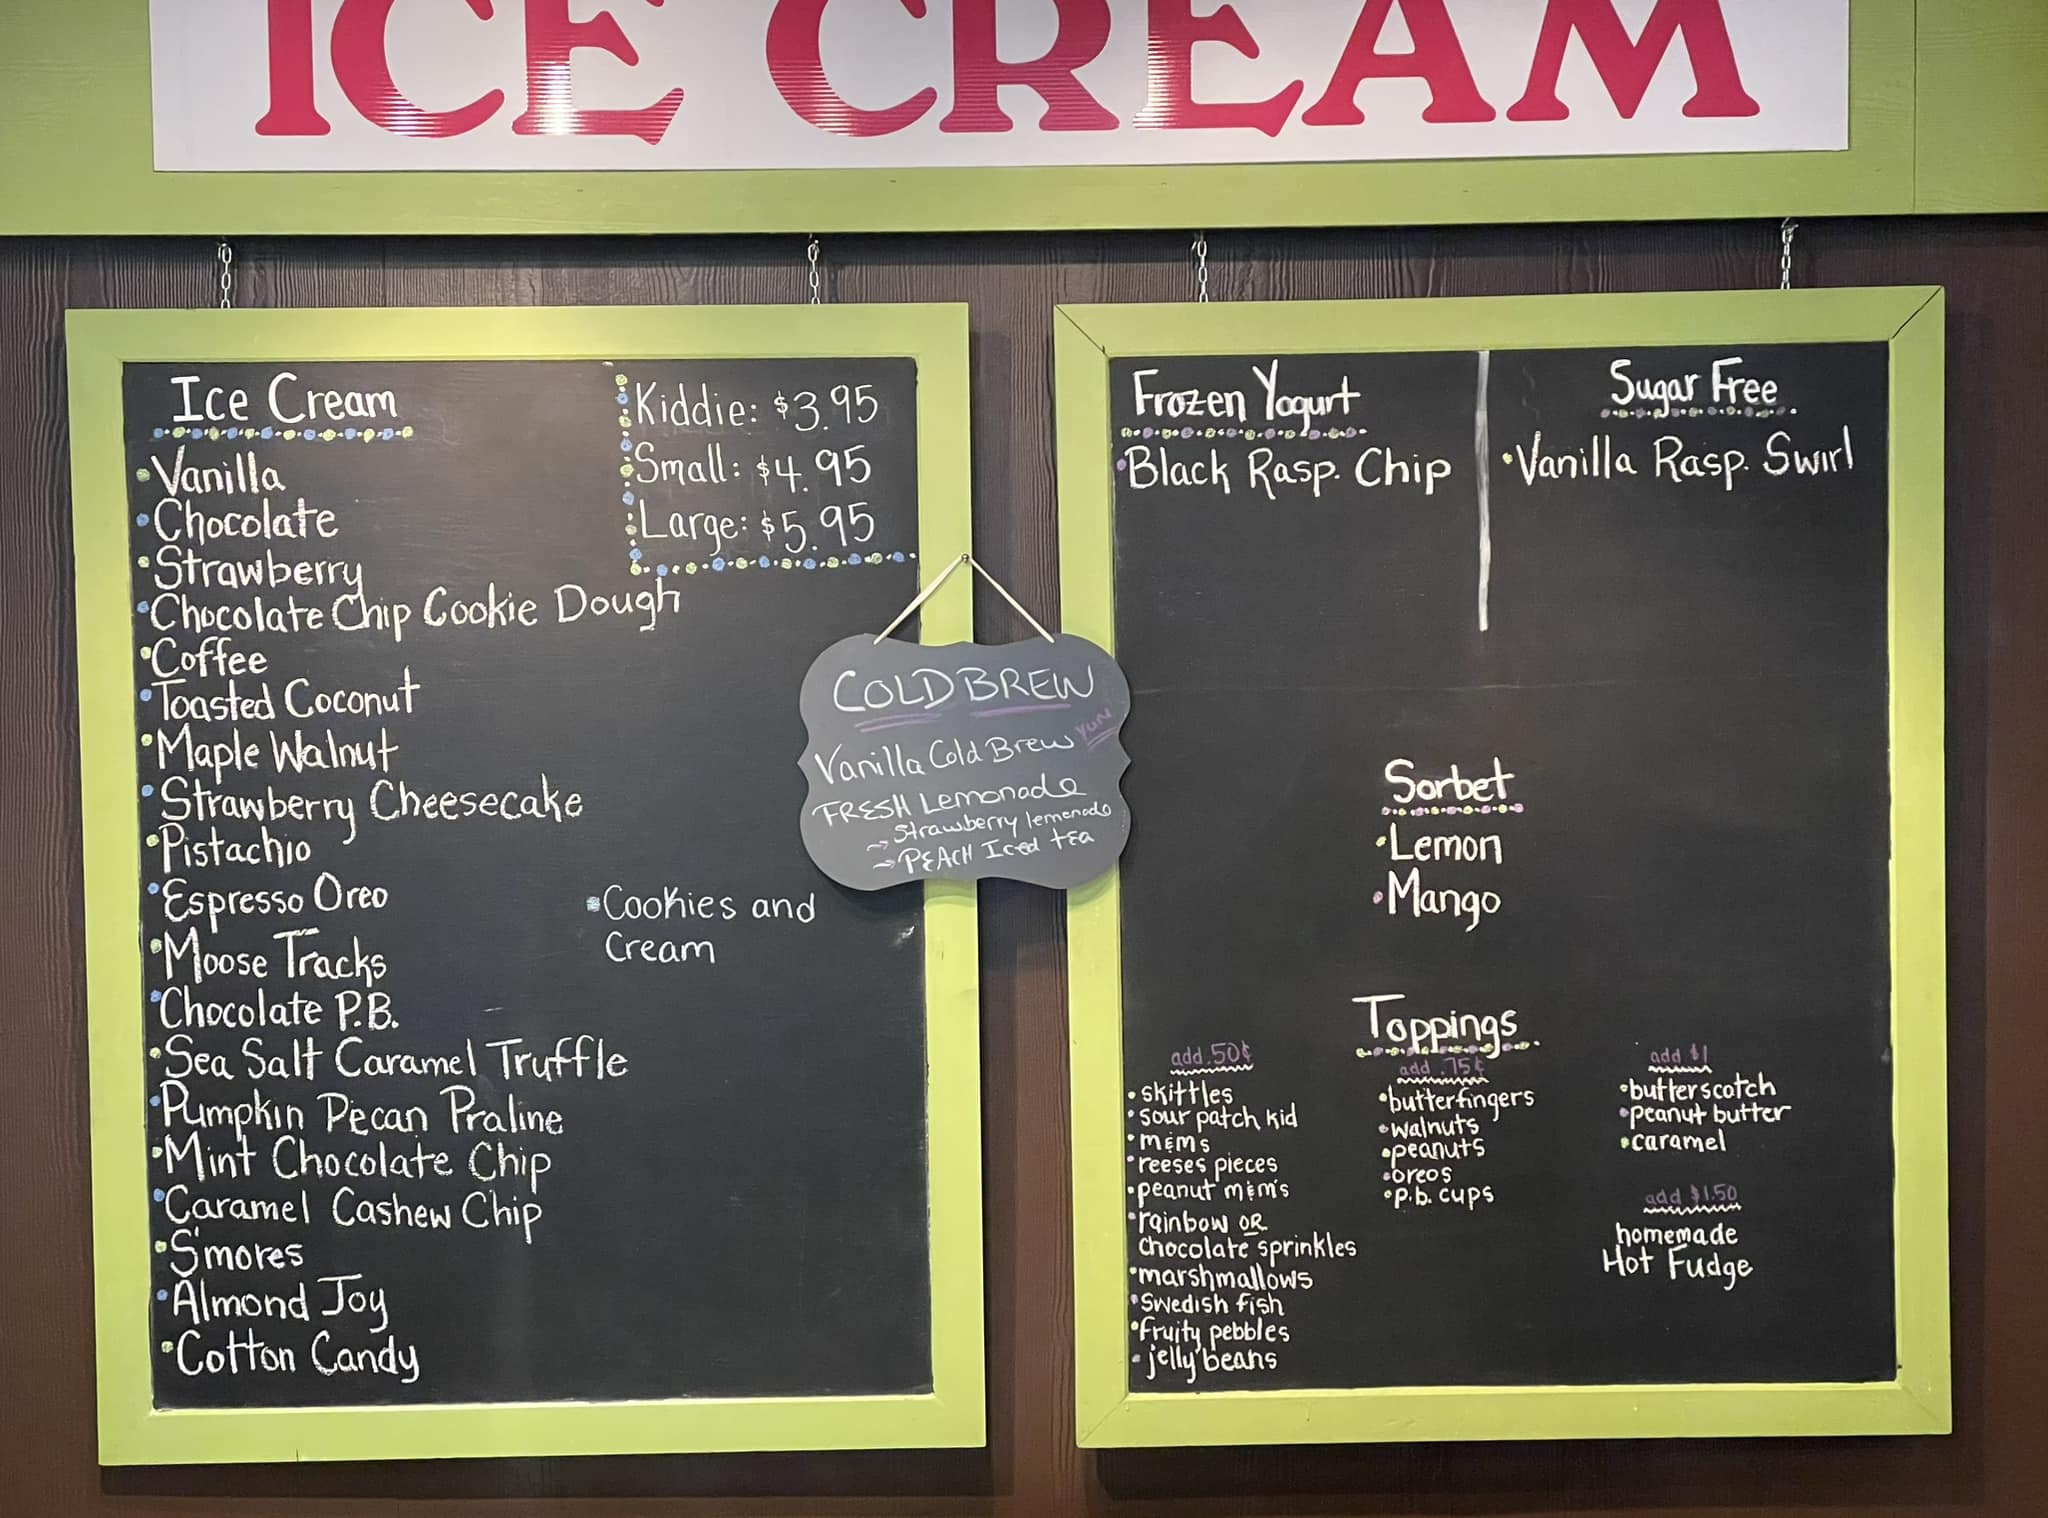 ICE CREAM
Ice Cream
Vanilla
Chocolate
Strawberry
Chocolate Chip Cookie Dough
Coffee
Toasted Coconut
Maple Walnut
Strawberry Cheesecake
Pistachio
Espresso Oreo
Moose Tracks
Chocolate P.B.
Sea Salt Caramel Truffle
Pumpkin Pecan Praline
Mint Chocolate Chip
Caramel Cashew Chip
S'mores
Almond Joy
Cotton Candy
Kiddie: $3.95
Small: $4.95
Large: $5.95
Cookies and
Cream
COLD BREW
YUM
Vanilla Cold Brew
FRESH Lemonade
→ Strawberry lemonade
→ PEACH Iced tea
Frozen Yogurt
Black Rasp. Chip
Sugar Free
Vanilla Rasp. Swirl
Sorbet
Lemon
Mango
Toppings
add .50¢
skittles
sour patch kid
m&ms
reeses pieces
peanut m&m's
rainbow OR
chocolate sprinkles
marshmallows
Swedish fish
fruity pebbles
jelly beans
add .75¢
butterfingers
walnuts
peanuts
oreos
p.b. cups
add $1
butterscotch
peanut butter
caramel
add $1.50
homemade
Hot Fudge